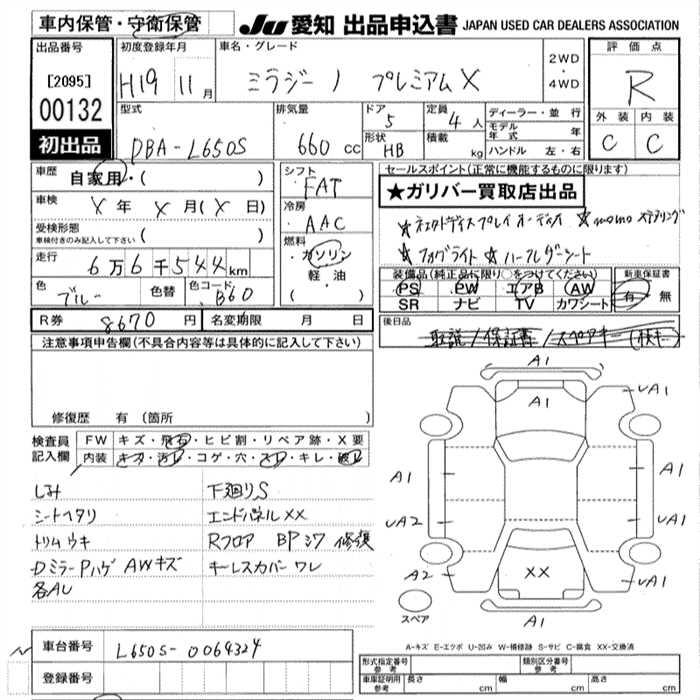 車内保管・守衛保管
JU 愛知 出品申込書 JAPAN USED CAR DEALERS ASSOCIATION
出品番号
[2095]
00132
初出品
初度登録年月
H19 11月
車名・グレード
ミラジーノ プレミアムX
2WD
・
4WD
評価点
R
外装 内装
C C
型式
DBA-L650S
排気量
660 cc
ドア
5
形状
HB
定員
4人
積載
kg
ディーラー・並行
モデル年式 年
ハンドル 左・右
車歴
自家用・( )
車検
X年 X月(X日)
受検形態
車検付きのみ記入して下さい ( )
走行
6万6千544km
色
ブルー
色替
色コード
B60
シフト
FAT
冷房
AAC
燃料
ガソリン
軽油
( )
セールスポイント(正常に機能するものに限ります)
★ガリバー買取店出品
☆ ☆momoステアリング
☆フォグライト ☆ハーフレザーシート
装備品(純正品に限り○をつけてください)
PS PW エアB AW
SR ナビ TV カワシート
新車保証書
有・無
R券 8670円
名変期限 月 日
後日品
取説/保証書/スペアキー
注意事項申告欄(不具合内容等は具体的に記入して下さい)
修復歴 有 (箇所 )
検査員
記入欄
FW キズ・飛石・ヒビ割・リペア跡・X要
内装 キズ・汚レ・コゲ・穴・スレ・キレ・破レ
しみ 下廻りS
シートヘタリ エンドパネルXX
トリムウキ Rフロア BPシワ 修復
DミラーPハゲ AWキズ キーレスカバーワレ
各AU
A1
A1
UA1
A1
A1
UA2
UA1
A2
XX
UA1
A1
スペア
A-キズ E-エクボ U-凹み W-補修跡 S-サビ C-腐食 XX-交換済
車台番号 L650S-0064324
登録番号
形式指定番号
参考
類別区分番号
参考
車庫証明用
参考
長さ cm 幅 cm 高さ cm